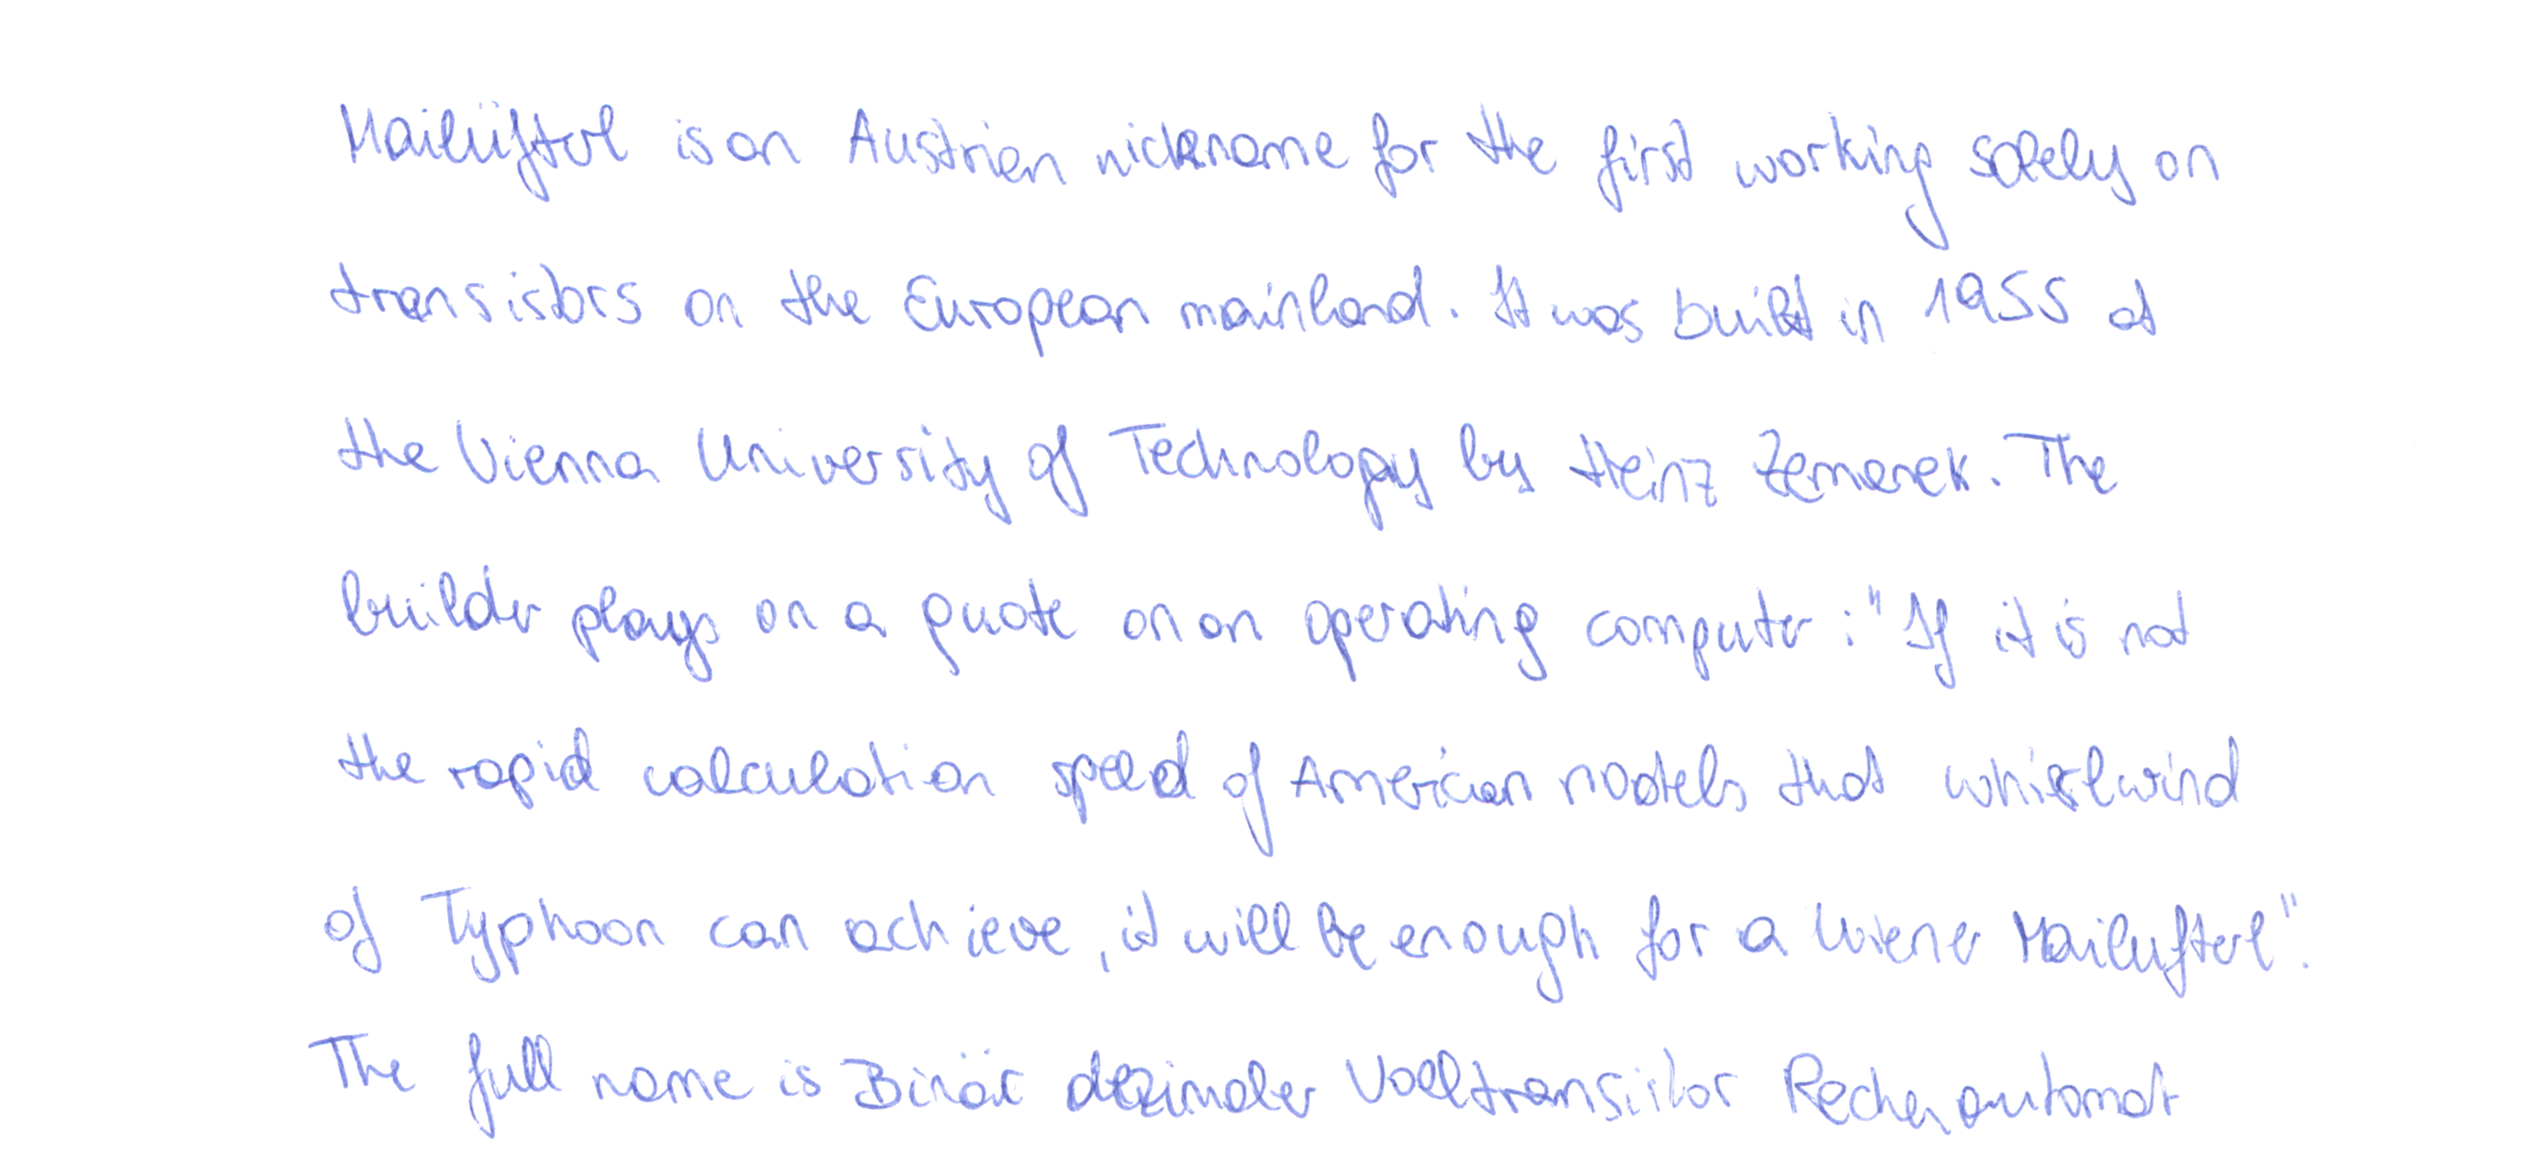 Mailüfterl is an Austrian nickname for the first working solely on
transistors on the European mainland. It was built in 1955 at
the Vienna University of Technology by Heinz Zemanek. The
builder plays on a quote on an operating computer: "If it is not
the rapid calculation speed of American models that whirlwind
of Typhoon can achieve, it will be enough for a Wiener Mailufterl".
The full name is Binär dezimaler Volltransistor Rechenautomat